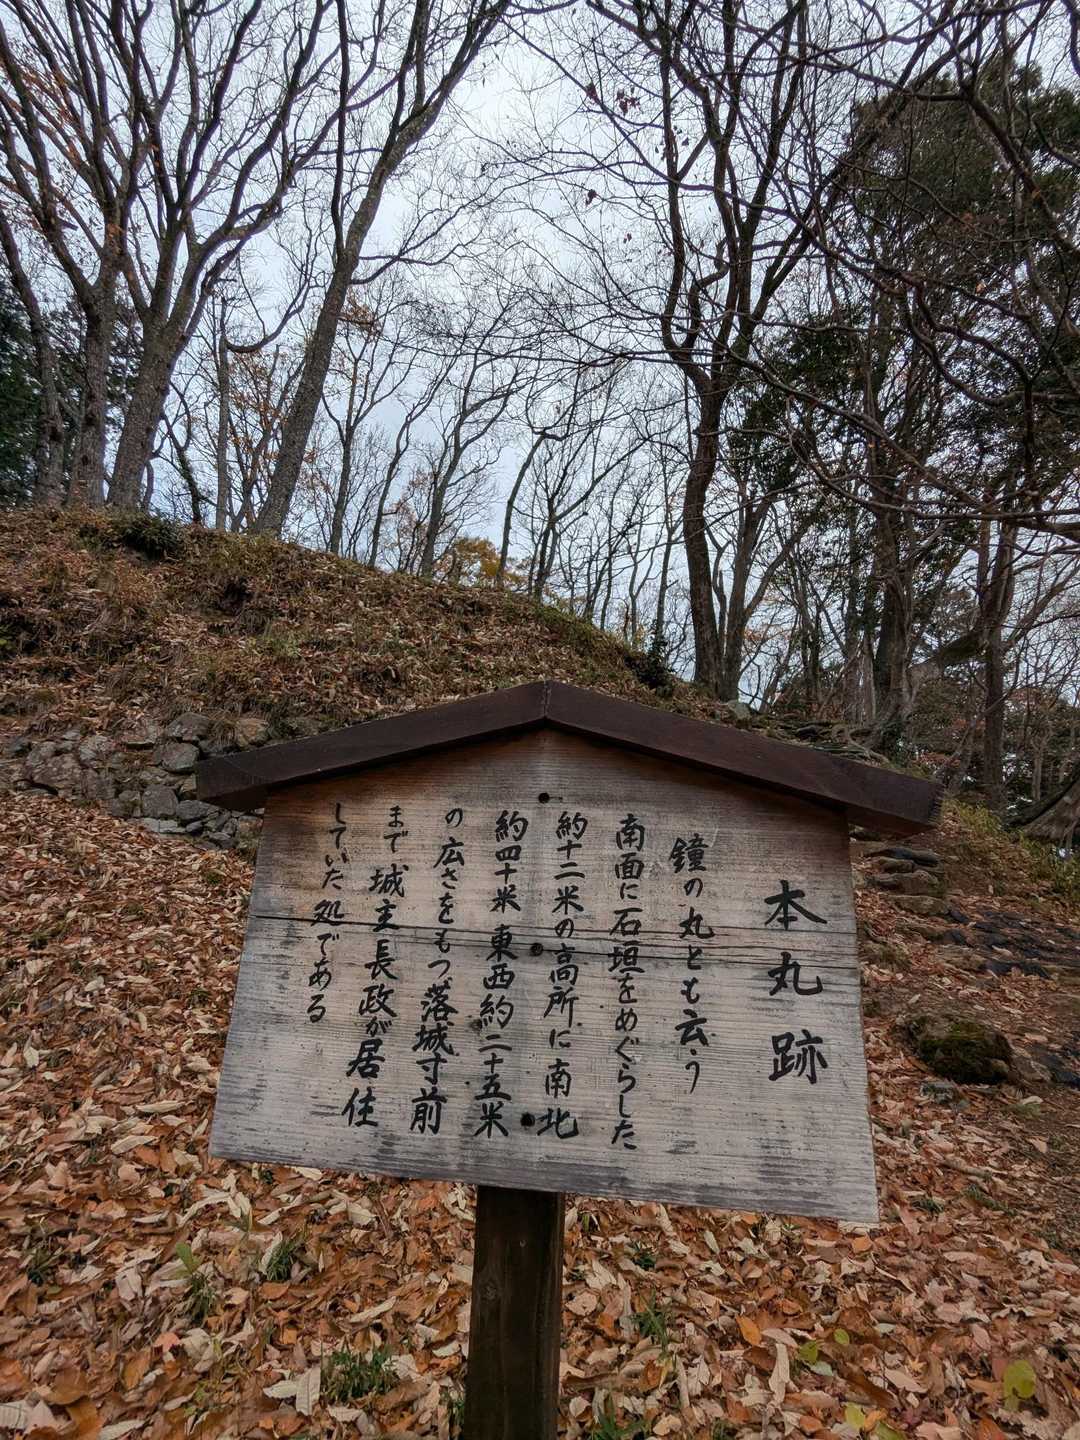 本丸跡
鐘の丸とも云う
南面に石垣をめぐらした
約十二米の高所に南北
約四十米東西約二十五米
の広さをもつ落城寸前
まで城主長政が居住
していた処である